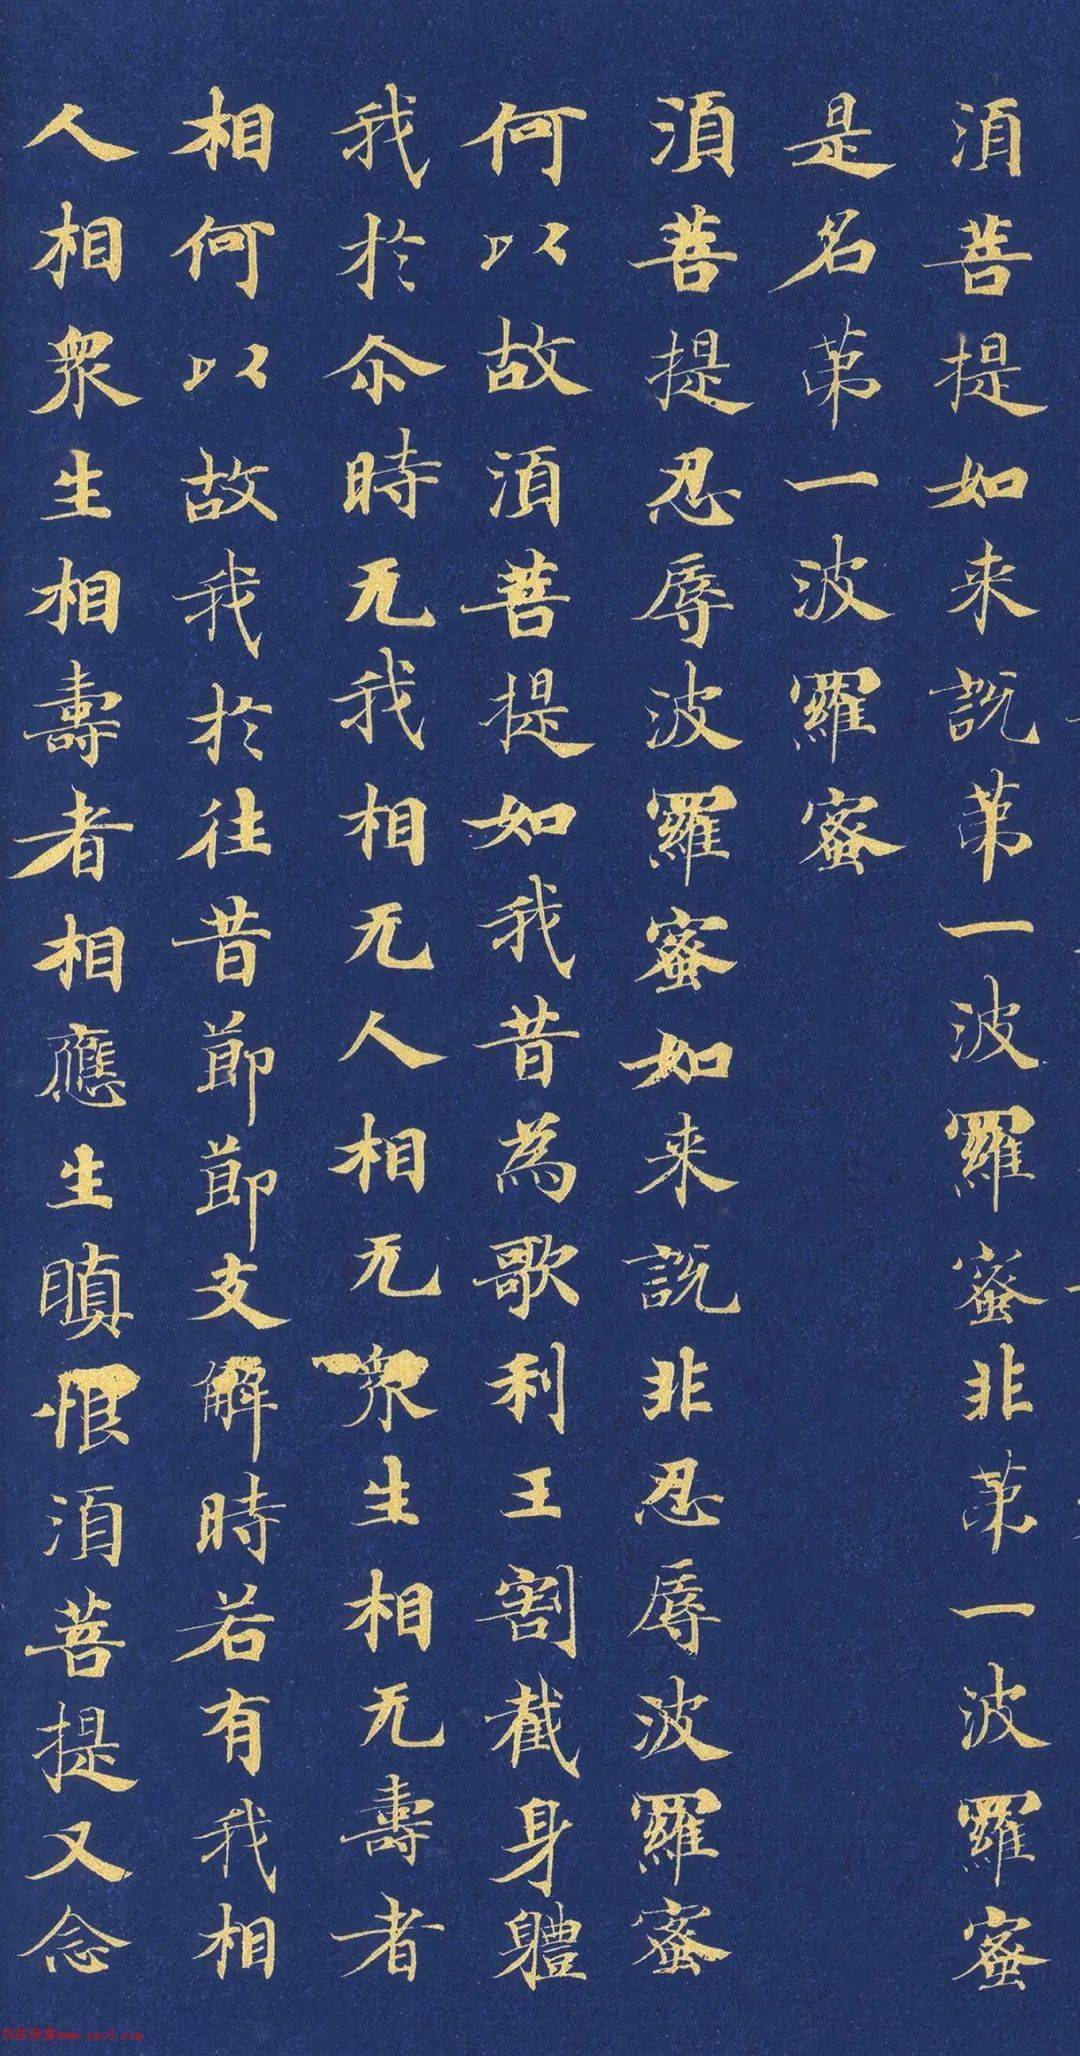 湏菩提如来説苐一波羅蜜非苐一波羅蜜
是名苐一波羅蜜
湏菩提忍辱波羅蜜如来説非忍辱波羅蜜
何以故湏菩提如我昔為歌利王割截身體
我於尒時无我相无人相无衆生相无壽者
相何以故我於往昔節節支解時若有我相
人相衆生相壽者相應生瞋恨湏菩提又念